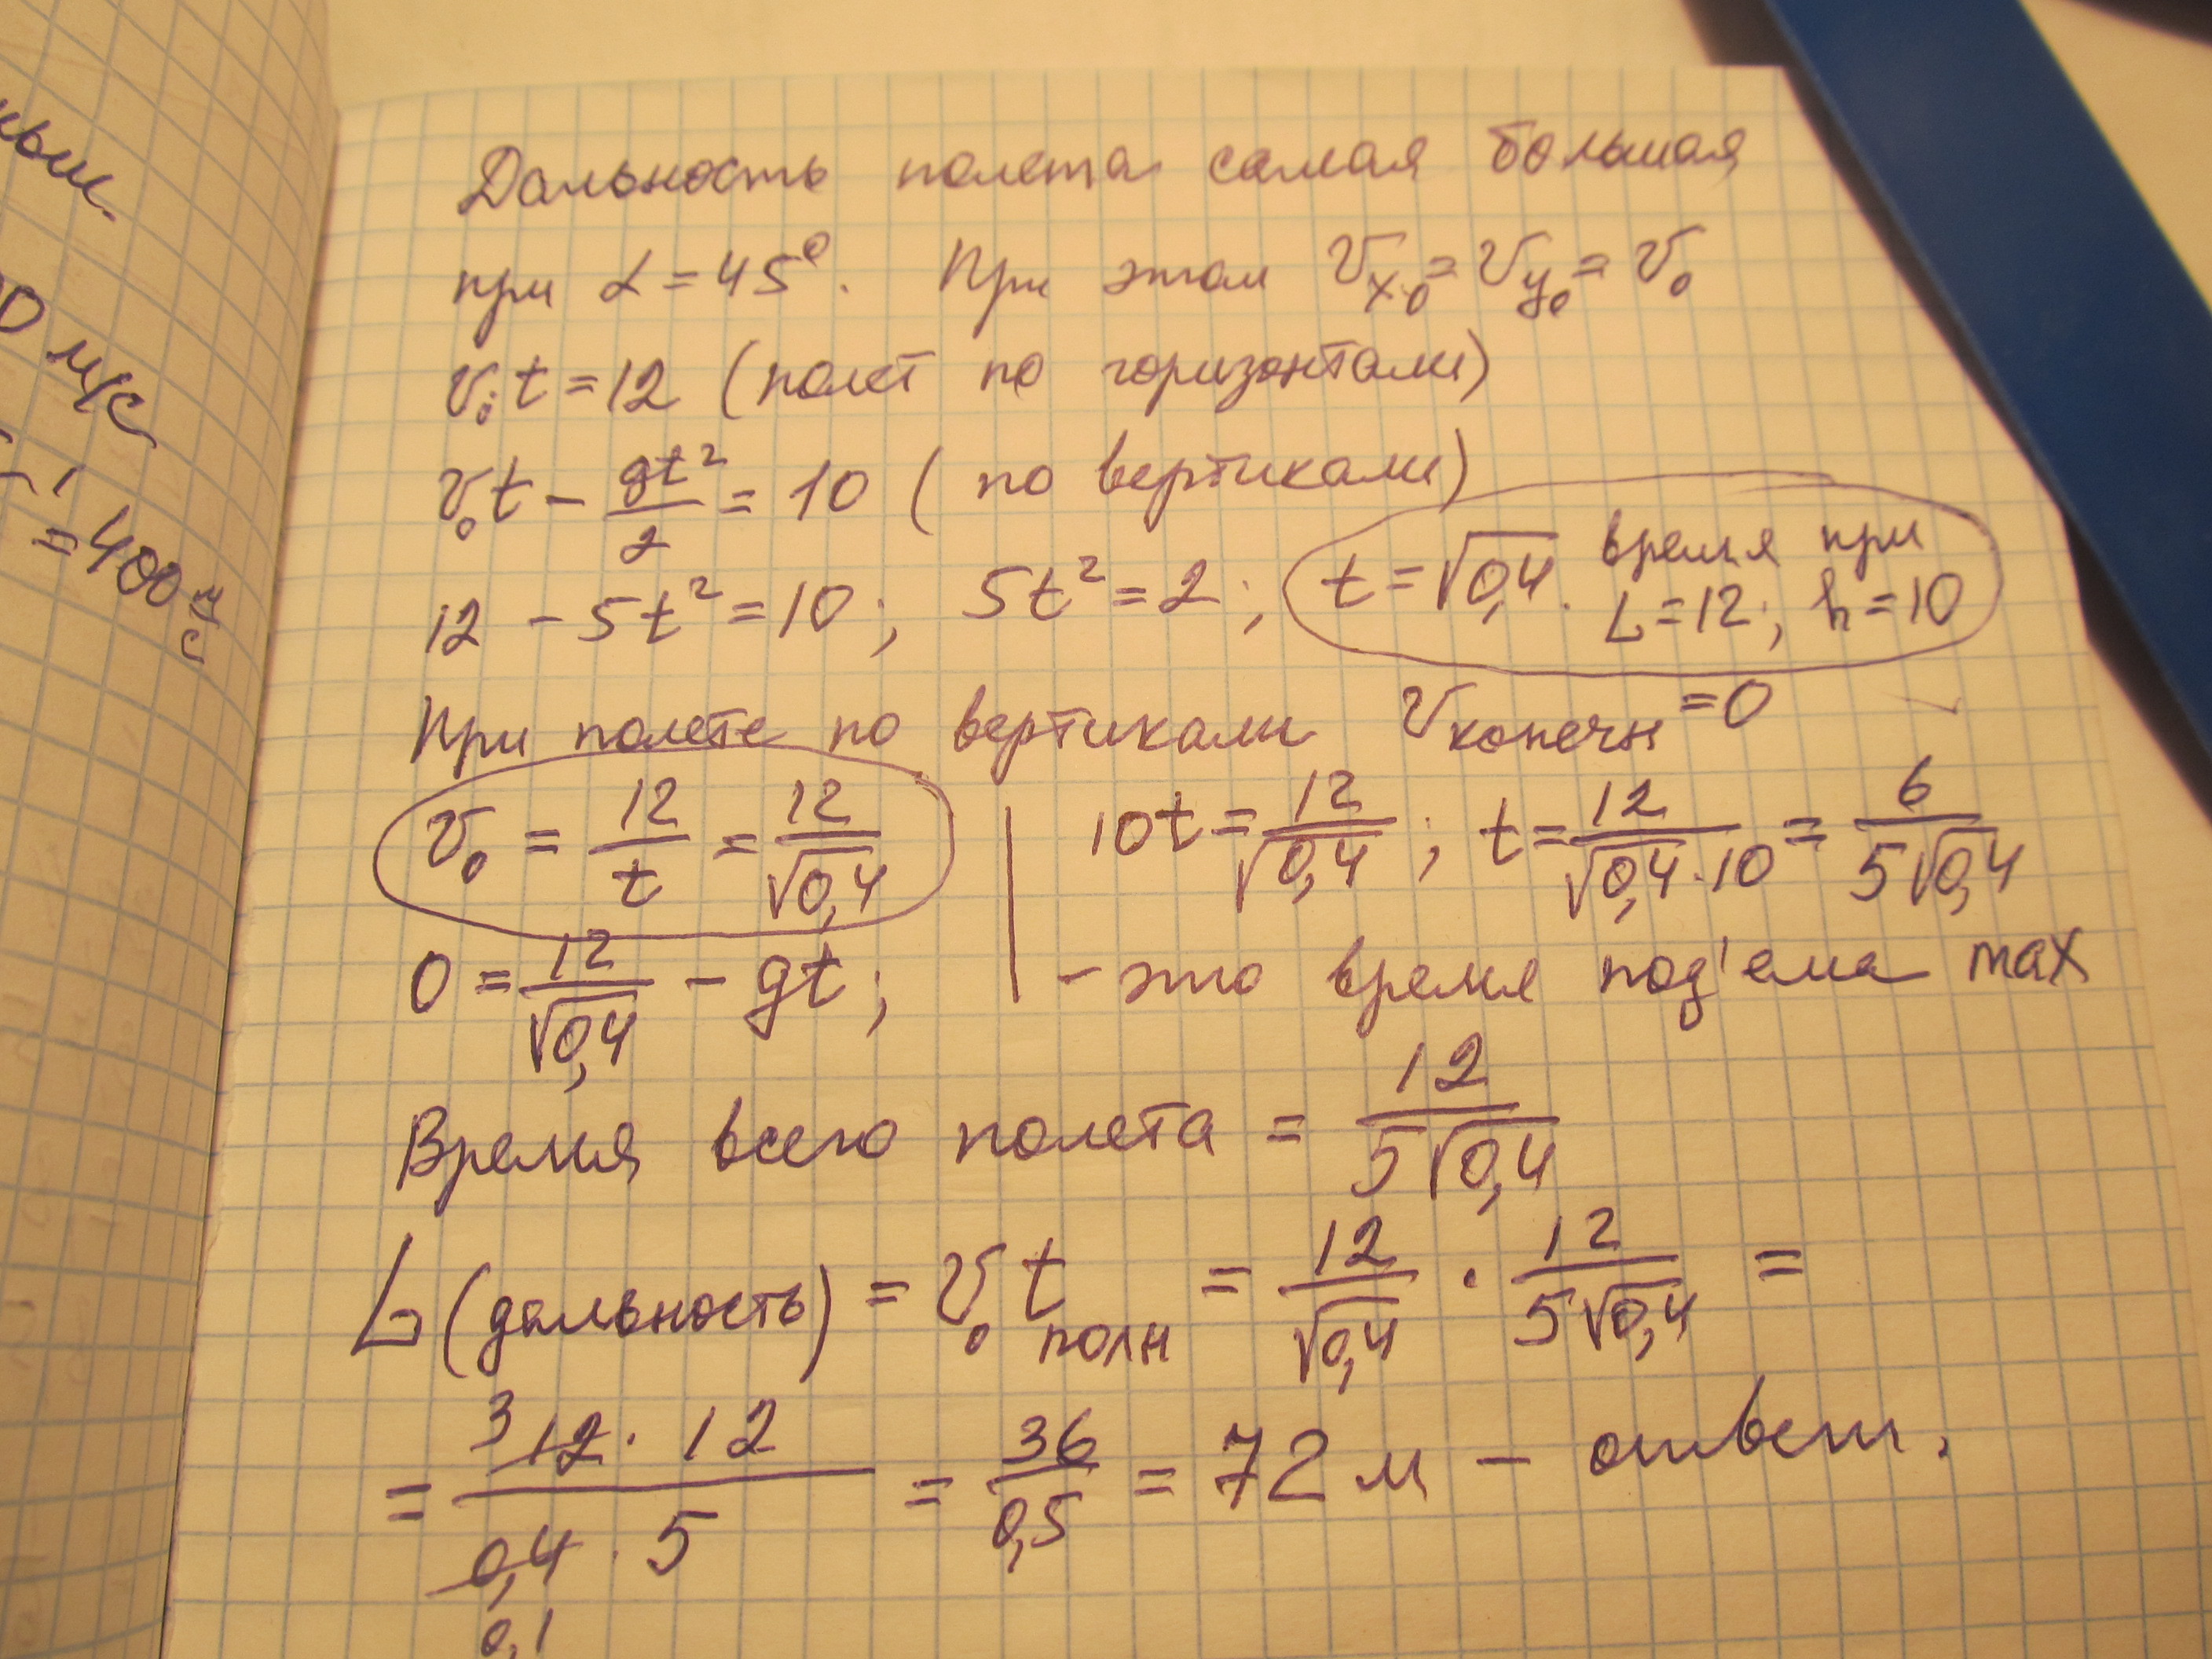 Дальность полета самая большая
при α = 45°. При этом Vx₀ = Vy₀ = V₀
V₀t = 12 (полет по горизонтали)
V₀t - gt²/2 = 10 (по вертикали)
12 - 5t² = 10; 5t² = 2; t = √0,4. время при L = 12; h = 10
При полете по вертикали Vконечн = 0
V₀ = 12/t = 12/√0,4 | 10t = 12/√0,4; t = 12/√0,4·10 = 6/5√0,4
0 = 12/√0,4 - gt; | - это время под'ема max
Время всего полета = 12/5√0,4
L (дальность) = V₀ tполн = 12/√0,4 · 12/5√0,4 =
= 3 12 · 12 / 0,4 · 5 = 36/0,5 = 72 м - ответ.
0,1
м/с
= 400 м/с